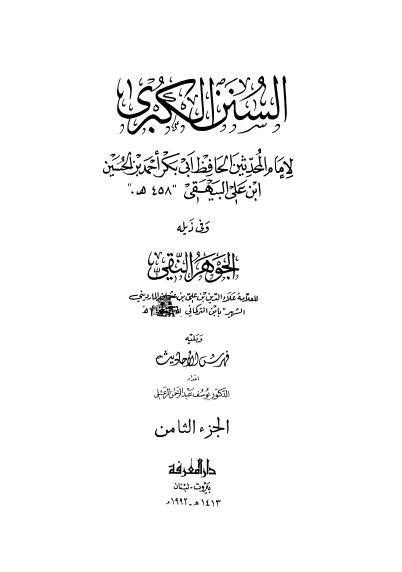 السُّنَنُ الكُبْرى
لإِمَامِ المُحَدِّثِينَ الحَافِظِ أَبي بَكْر أَحْمَدَ بْنِ الحُسَيْنِ
ابْنِ عَلي البَيْهَقي "٤٥٨ هـ."
وفي ذيله
الجَوْهَرُ النَّقِيّ
للعلامة علاء الدين بن علي بن عثمان المارديني
الشهير بابن التركماني
ويليه
فِهْرِسُ الأَحَاديث
إعداد
الدكتور يُوسُف عَبدالرَّحمن المَرعَشلي
الجزء الثامن
دار المعرفة
بيروت - لبنان
١٤١٣ هـ - ١٩٩٢ م